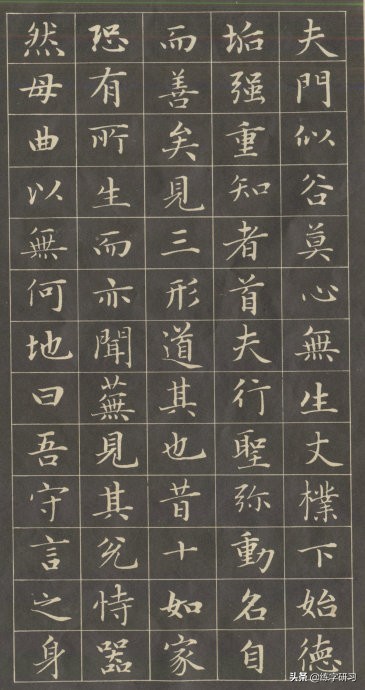 夫門似谷莫心無生丈樸下始德
垢强重知者首夫行聖弥動名自
而善矣見三形道其也昔十如家
恐有所生而亦聞蕪見其兊恃器
然母曲以無何地曰吾守言之身
头条 @练字研习